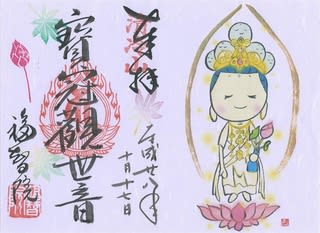 奉拝
平成廿八年
十月十七日
寶冠觀世音
福智院